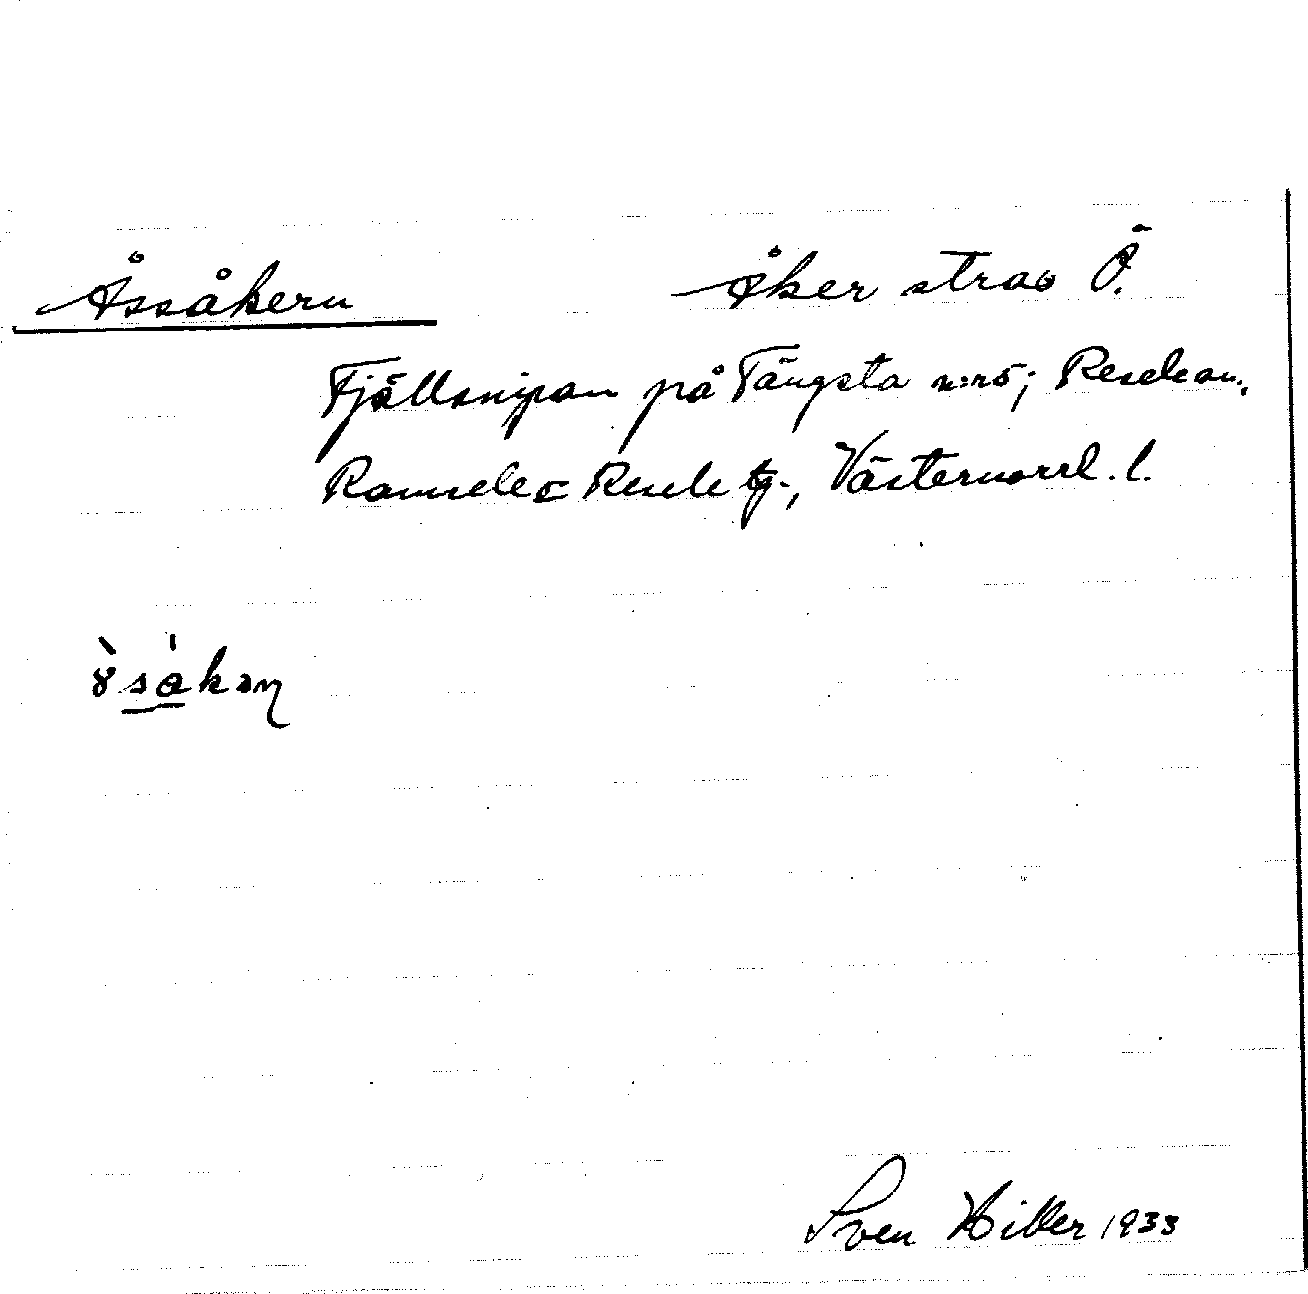 Åssåkern Åker strax Ö.
Fjällsnipan på Tängsta n:r5; Resele sn.,
Ramsele o Resele tg., Västernorrl. l.
Sven Hiller 1933